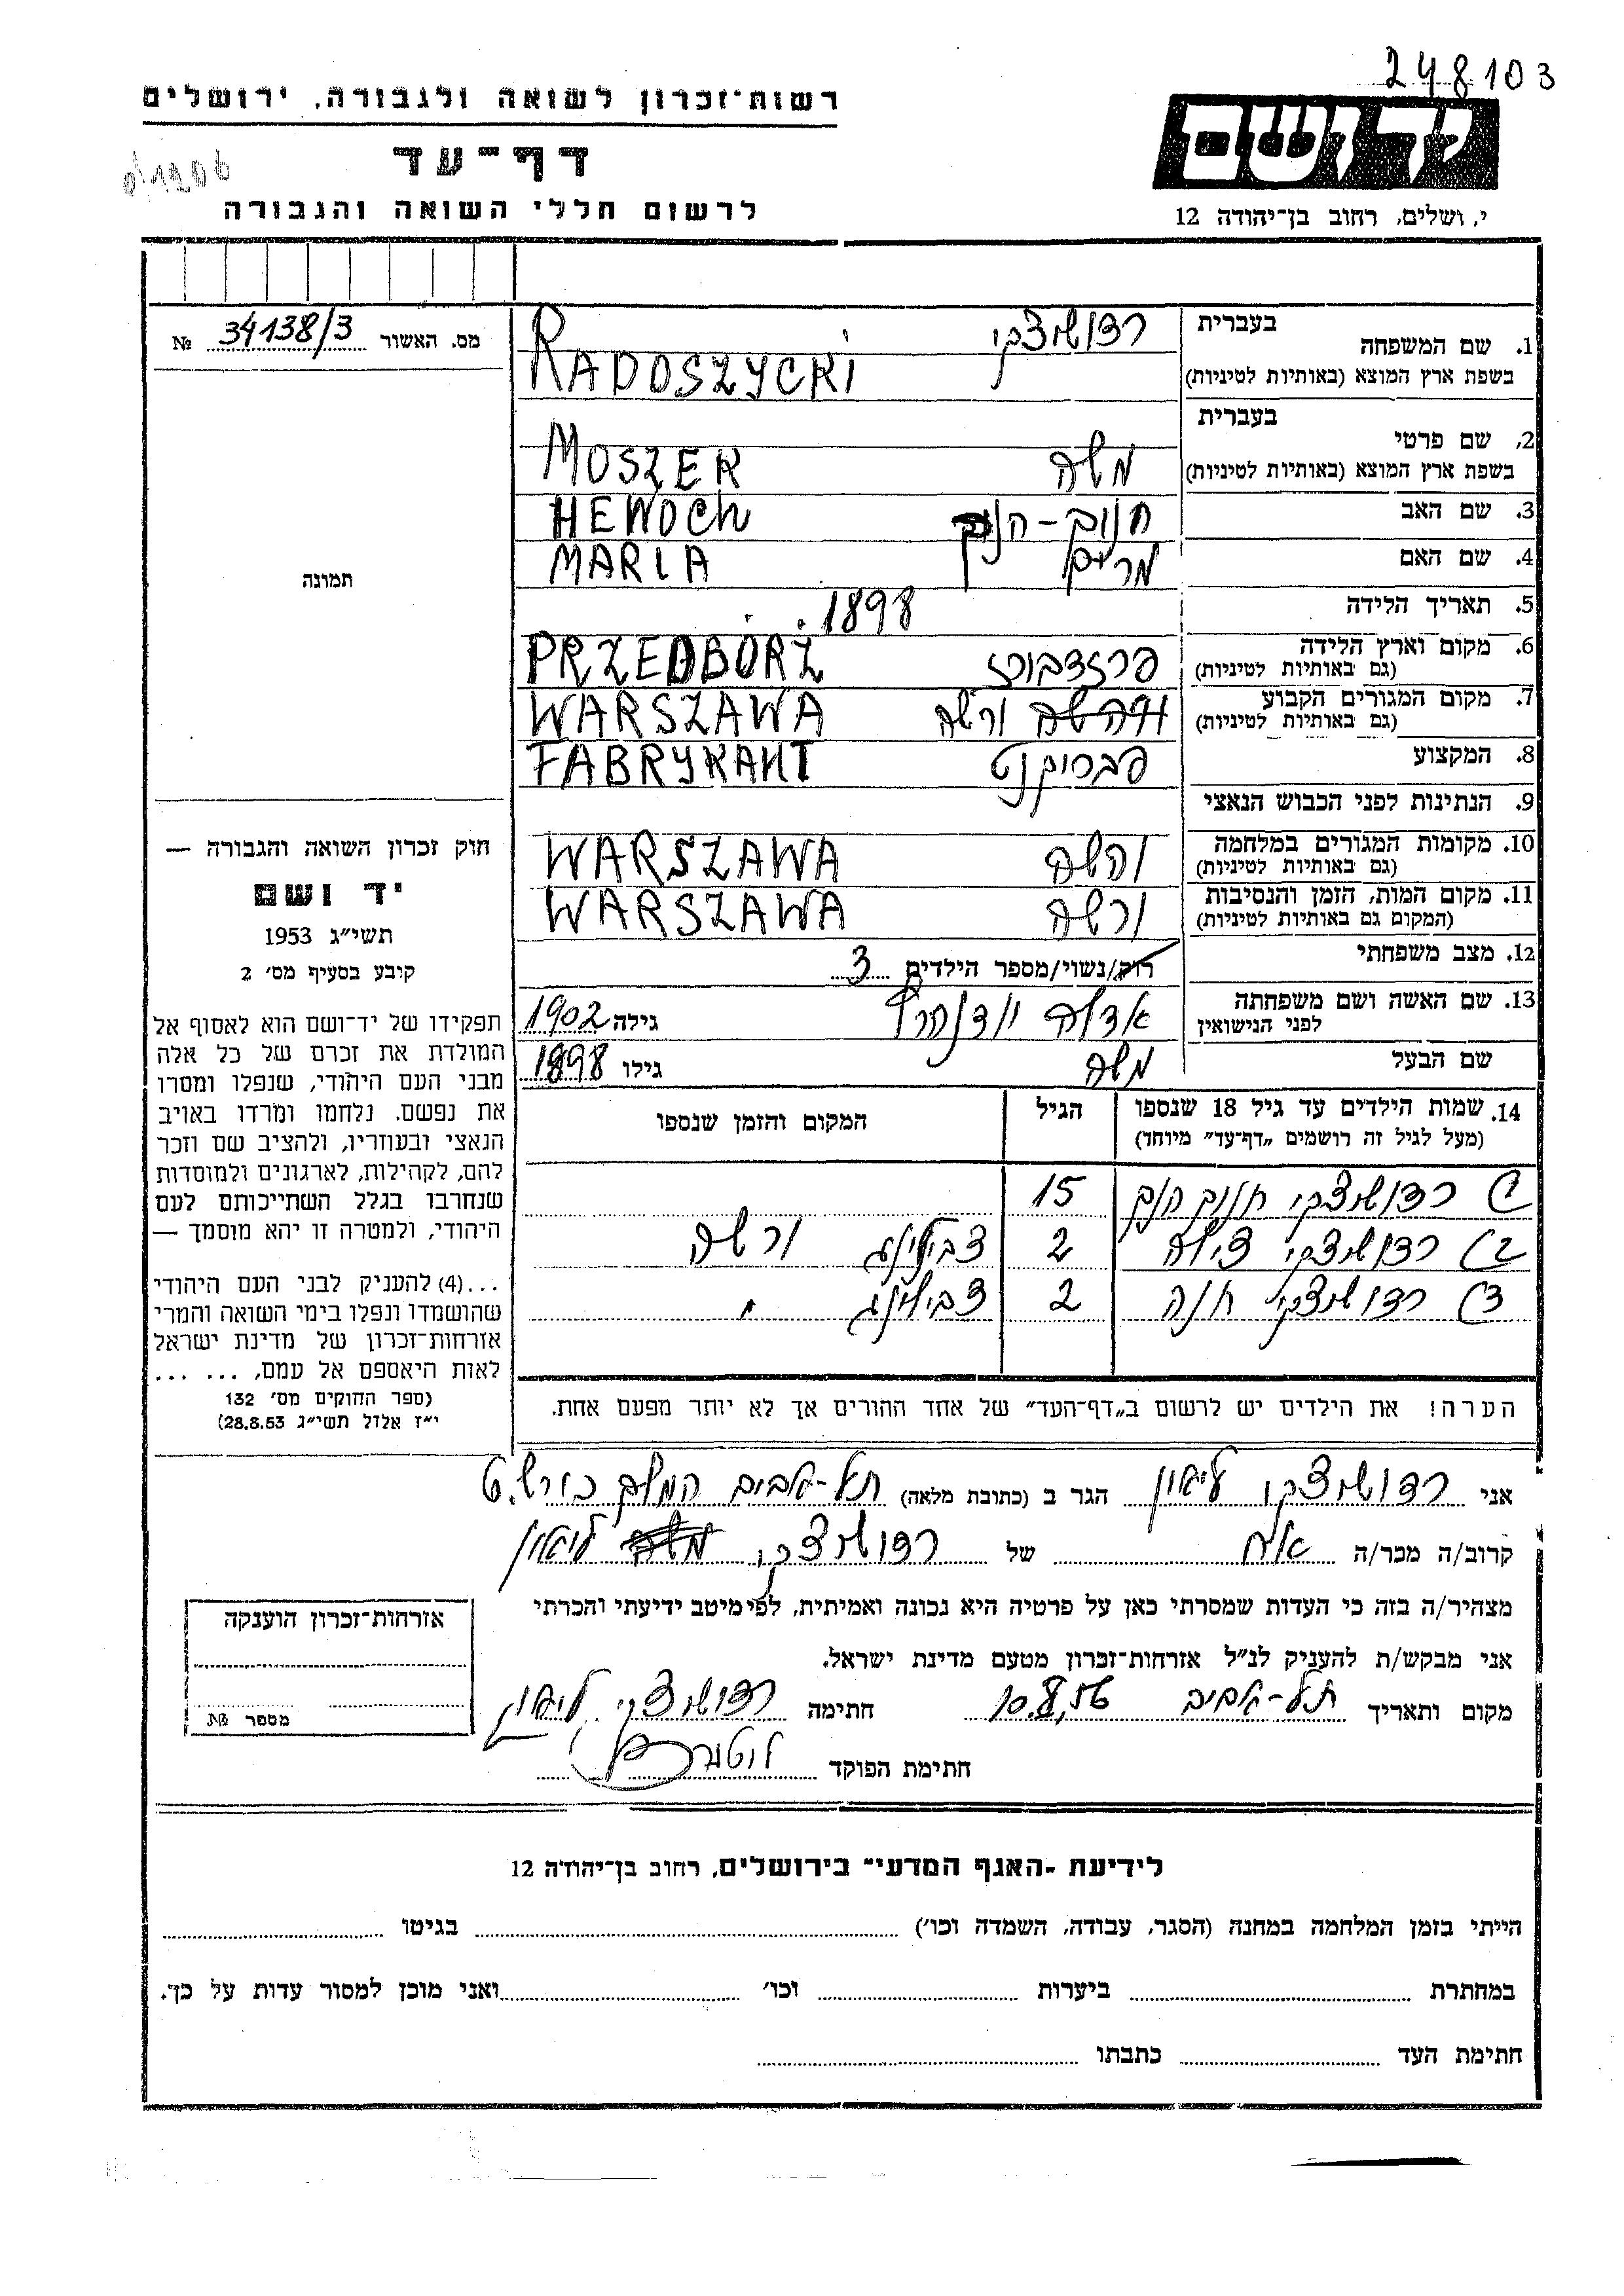 248103
ידושם
י. ושלים, רחוב בן־יהודה 12
רשות־זכרון לשואה ולגבורה, ירושלים
דף־עד
לרשום חללי השואה והגבורה
מס. האשור 34138/3 №
תמונה
1. שם המשפחה בעברית רדושצקי
בשפת ארץ המוצא (באותיות לטיניות) RADOSZYCKI
2. שם פרטי בעברית משה
בשפת ארץ המוצא (באותיות לטיניות) MOSZER
3. שם האב חנוך - הנוך HENOCH
4. שם האם מרים MARIA
5. תאריך הלידה 1898
6. מקום וארץ הלידה פרזדבורז PRZEDBÓRZ
(גם באותיות לטיניות)
7. מקום המגורים הקבוע ורשה WARSZAWA
(גם באותיות לטיניות)
8. המקצוע פבריקנט FABRYKANT
9. הנתינות לפני הכבוש הנאצי
10. מקומות המגורים במלחמה ורשה WARSZAWA
(גם באותיות לטיניות)
11. מקום המות, הזמן והנסיבות ורשה WARSZAWA
(המקום גם באותיות לטיניות)
12. מצב משפחתי רווק/נשוי/מספר הילדים 3
13. שם האשה ושם משפחתה גילה 1902
לפני הנישואין
שם הבעל משה גילו 1898
14. שמות הילדים עד גיל 18 שנספו הגיל המקום והזמן שנספו
(מעל לגיל זה רושמים „דף־עד” מיוחד)
1) רדושצקי חנוך הנוך 15
2) רדושצקי 2 ורשה
3) רדושצקי חנה 2 "
הערה! את הילדים יש לרשום ב„דף־העד” של אחד ההורים אך לא יותר מפעם אחת.
חוק זכרון השואה והגבורה —
יד ושם
תשי״ג 1953
קובע בסעיף מס׳ 2
תפקידו של יד־ושם הוא לאסוף אל
המולדת את זכרם של כל אלה
מבני העם היהודי, שנפלו ומסרו
את נפשם. נלחמו ומרדו באויב
הנאצי ובעוזריו, ולהציב שם וזכר
להם, לקהילות, לארגונים ולמוסדות
שנחרבו בגלל השתייכותם לעם
היהודי, ולמטרה זו יהא מוסמך —
...(4) להעניק לבני העם היהודי
שהושמדו ונפלו בימי השואה והמרי
אזרחות־זכרון של מדינת ישראל
לאות היאספם אל עמם, ... ...
(ספר החוקים מס׳ 132
י״ז אלול תשי״ג 28.8.53)
אני רדושצקי ליאון הגר ב (כתובת מלאה) תל-אביב המלך כורש 9
קרוב/ה מכר/ה אח של רדושצקי משה ליאון
מצהיר/ה בזה כי העדות שמסרתי כאן על פרטיה היא נכונה ואמיתית, לפי מיטב ידיעתי והכרתי
אני מבקש/ת להעניק לנ״ל אזרחות־זכרון מטעם מדינת ישראל.
מקום ותאריך תל-אביב 10.8.56 חתימה רדושצקי ליאון
חתימת הפוקד
אזרחות־זכרון הוענקה
מספר №
לידיעת „האגף המדעי” בירושלים, רחוב בן־יהודה 12
הייתי בזמן המלחמה במחנה (הסגר, עבודה, השמדה וכו׳) בגיטו
במחתרת ביערות וכו׳ ואני מוכן למסור עדות על כך.
חתימת העד כתבתו